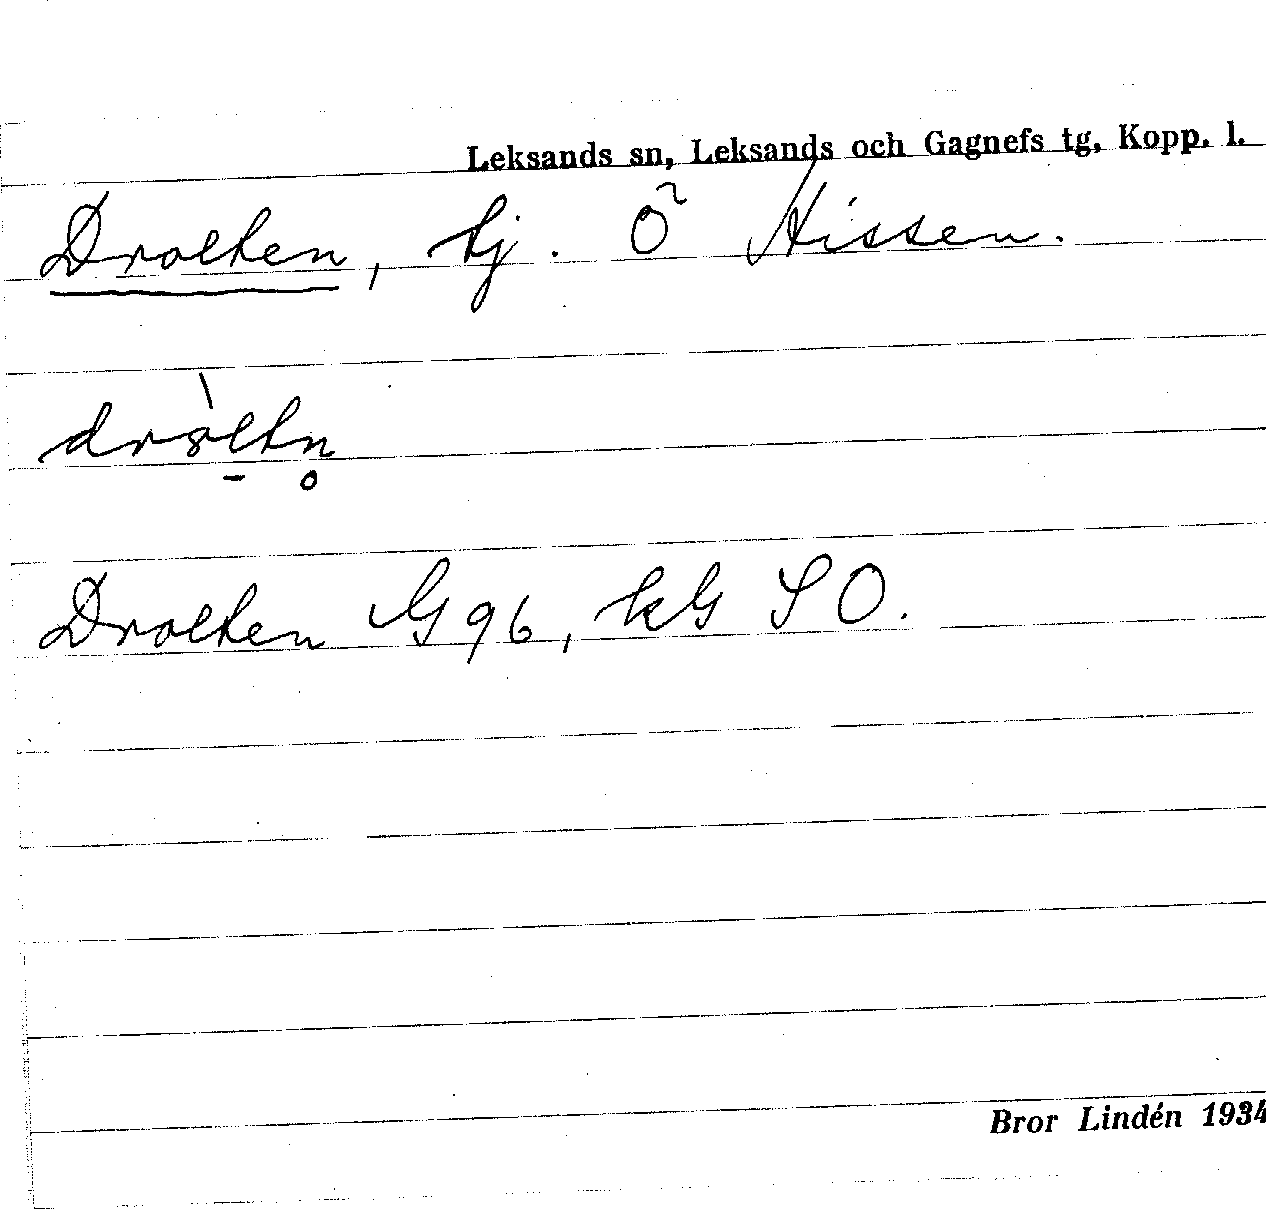 Leksands sn, Leksands och Gagnefs tg, Kopp. l.
Drolten, tj. Õ Hissen.
Drolten G 96, kG SO.
Bror Lindén 1934